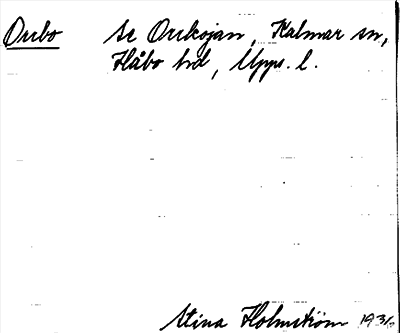 Orrbo Se Orrkojan, Kalmar sn,
Håbo hd, Upps. l.
Stina Holmström 1936